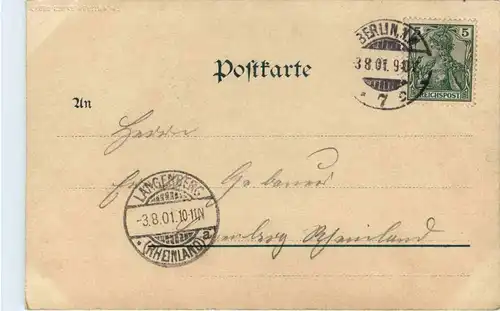 BERLIN
5
3 8.01. 9-10V
REICHSPOST
* 7 c
Postkarte
An
Herrn
Gebauer
LANGENBERG
-3.8.01.10-11N
(RHEINLAND) a
Rheinland